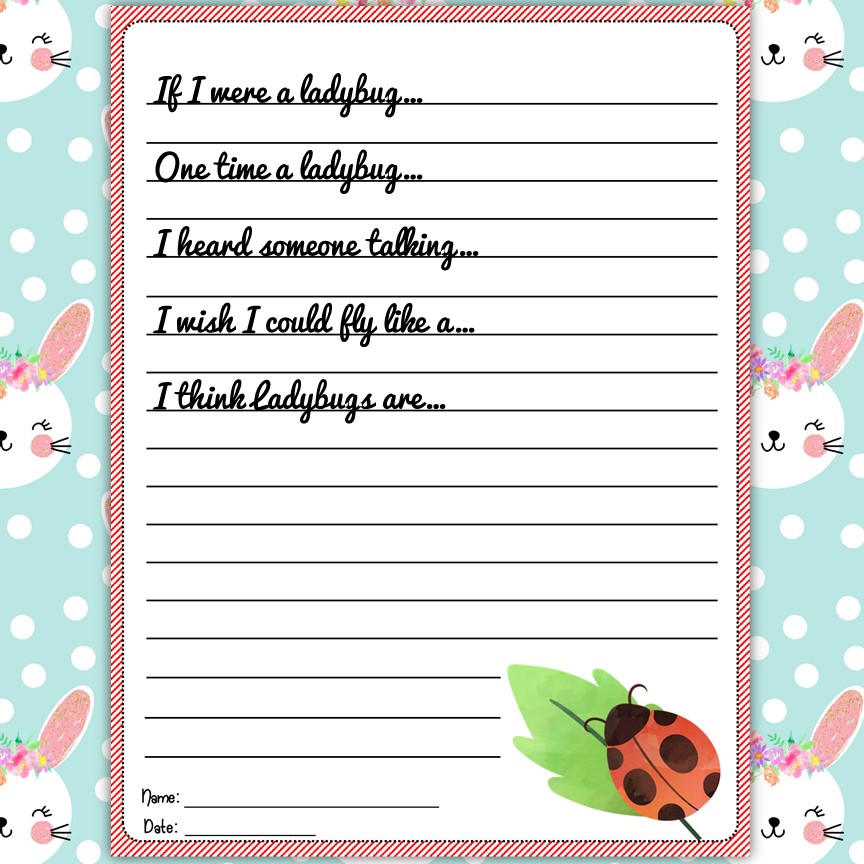 If I were a ladybug...
One time a ladybug...
I heard someone talking...
I wish I could fly like a...
I think Ladybugs are...
Name:
Date: